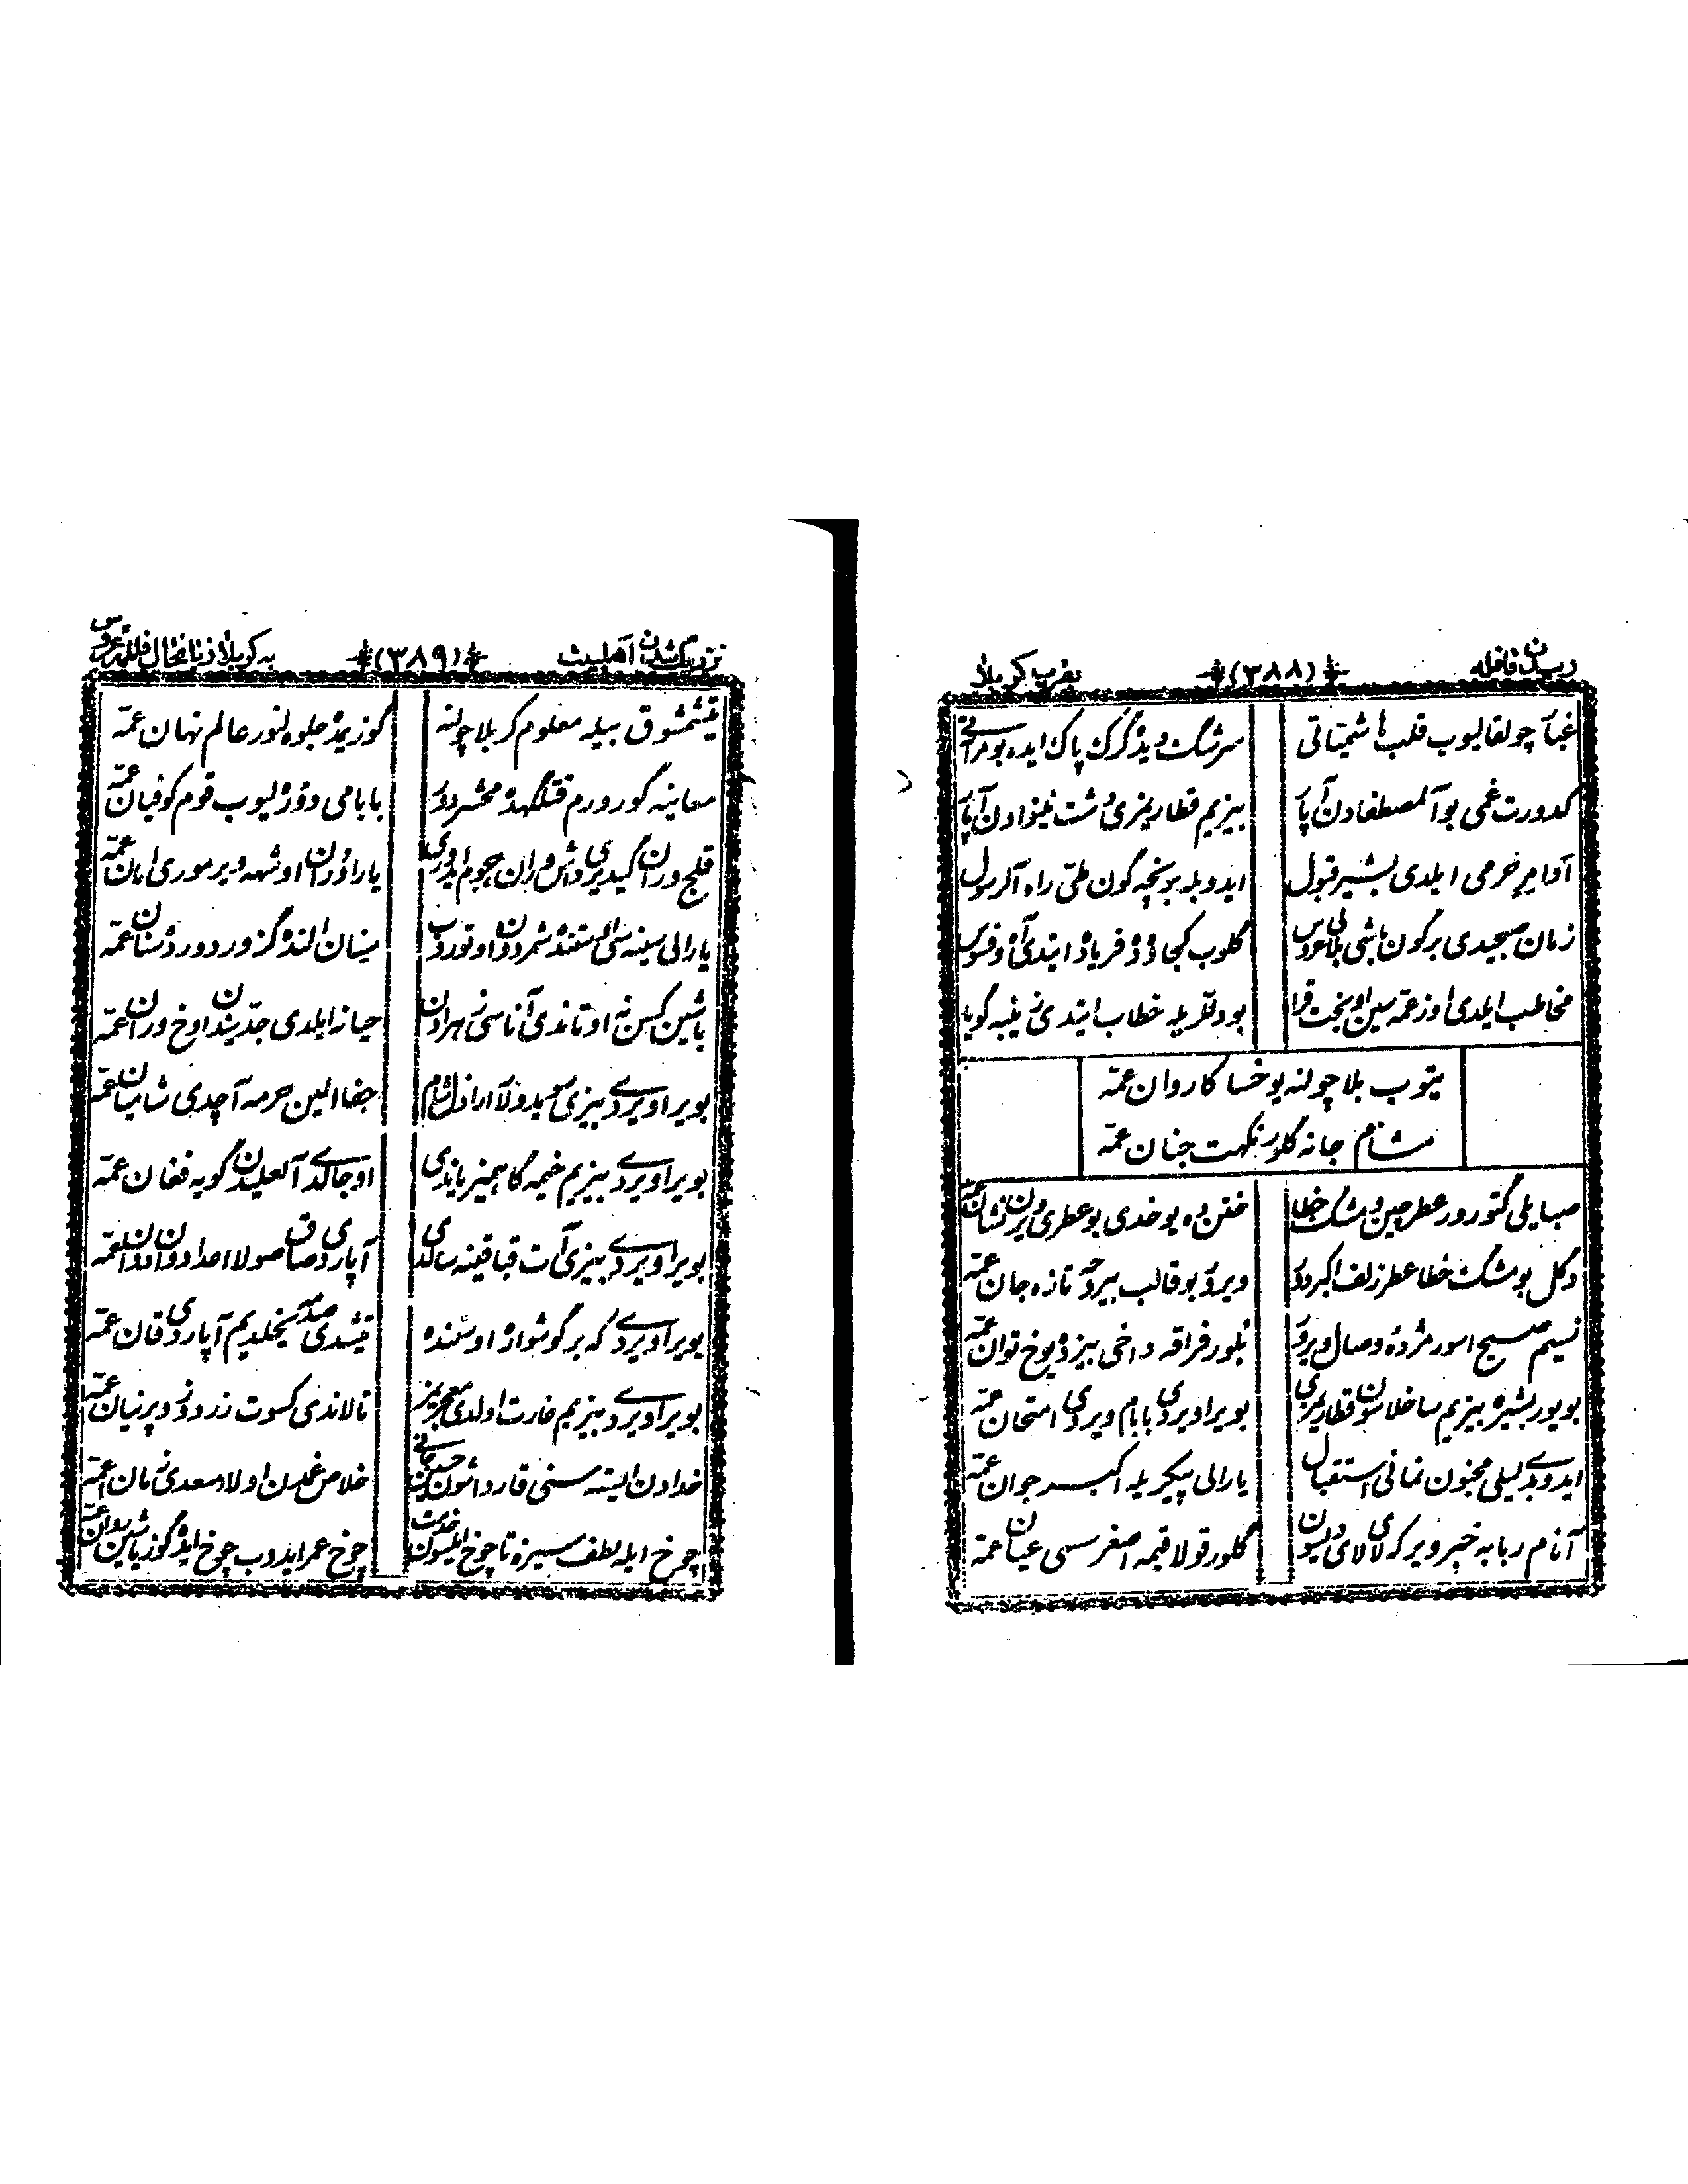 رسیدن قافله (۳۸۸) بقرب کربلا
غبار چولقالیوب قلب با شماتی سرشک دیده گرک پاک ایده بو مرآتی
کدورت غمی بو آل مصطفادن آپار بیزیم قطاریمزی دشت نینوادن آپار
آدامر خرمی ایلدی بشیر قبول ایدوبله بو نخچه گون طی راه آل رسول
زمان صبحیدی بر گون باشی بلالی عروس گلوب کجاوه‌ده فریاده ایتدی آه و فسوس
مخاطب ایلدی اوز عمه سین او بخت قرا بو دللریله خطاب ایتدی زینبه گویا
یتوب بلا چولنه یوخسا کاروان عمه
مشام جانه گلور نکهت جنان عمه
صبا یلی گتورور عطر چین و مشک خطا ختن ده یوخدی بو عطری ویرن نشان عمه
دگل بو مشک خطا عطر زلف اکبردور ویرور بو قالب بیروحه تازه جان عمه
نسیم صبح اسور مژدهٔ وصال ویرور بلور فراقه داخی بیزده یوخ توان عمه
بویور بشیره بیزیم ساخلاسون قطاریمزی بویر اویردی بابام ویردی امتحان عمه
ایدوبدی لیلی مجنون نمانی استقبال یارالی پیکریله اکبر جوان عمه
آنام ربابه خبر ویر که لای لای دیسون گلور قولاقیمه اصغر سسی عیان عمه
نزدیک شدن اهلبیت (۳۸۹) به کربلا و زبانحال فاطمه عروس
یتشمشوق بیله معلوم کربلا چولنه گوزیمده جلوه‌لنور عالم نهان عمه
معاینه گورورم قتلگهده محشردور بابامی دوره لیوب قوم کوفیان عمه
قلج وران گیدیری داش وران هجوم ایدیری یارا وران او شهه ویرموری امان عمه
یارالی سینه سی اوستنده شمر دون اوتوروب سنان النده گزور دورورده سنان عمه
باشین کسن نه اوتاندی آناسی زهرادن حیا نه ایلدی جدیندن اوخ وران عمه
بویر اویردی بیزی سعیدولر ارازل شام جفا الین حرمه آچدی شامیان عمه
بویر اویردی بیزیم خیمه گاهمیز یاندی اوجالدی آل علیدن گویه فغان عمه
بویر اویردی بیزی آت قباقینه سالدی آپاردی صاق صولا اعدا دوان دوان عمه
بویر اویردی که بر گوشواره اوستنده یتشدی صدمه یخلدیم آپاردی قان عمه
بویر اویردی بیزیم غارت اولدی معجریمیز تالاندی کسوت زردوز و پرنیان عمه
خدادن ایسته سنی قارداشون حسین جانی خلاص غمدن اولا سعدی زمان عمه
چوخ ایله لطف سیزه تا چوخ ایلسون خدمت چوخ عمر ایدوب چوخ ایده گوز یاشین روان عمه